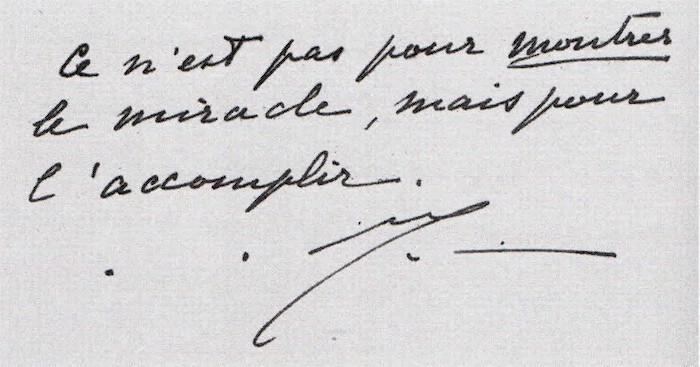 Ce n'est pas pour montrer
le miracle, mais pour
l'accomplir.